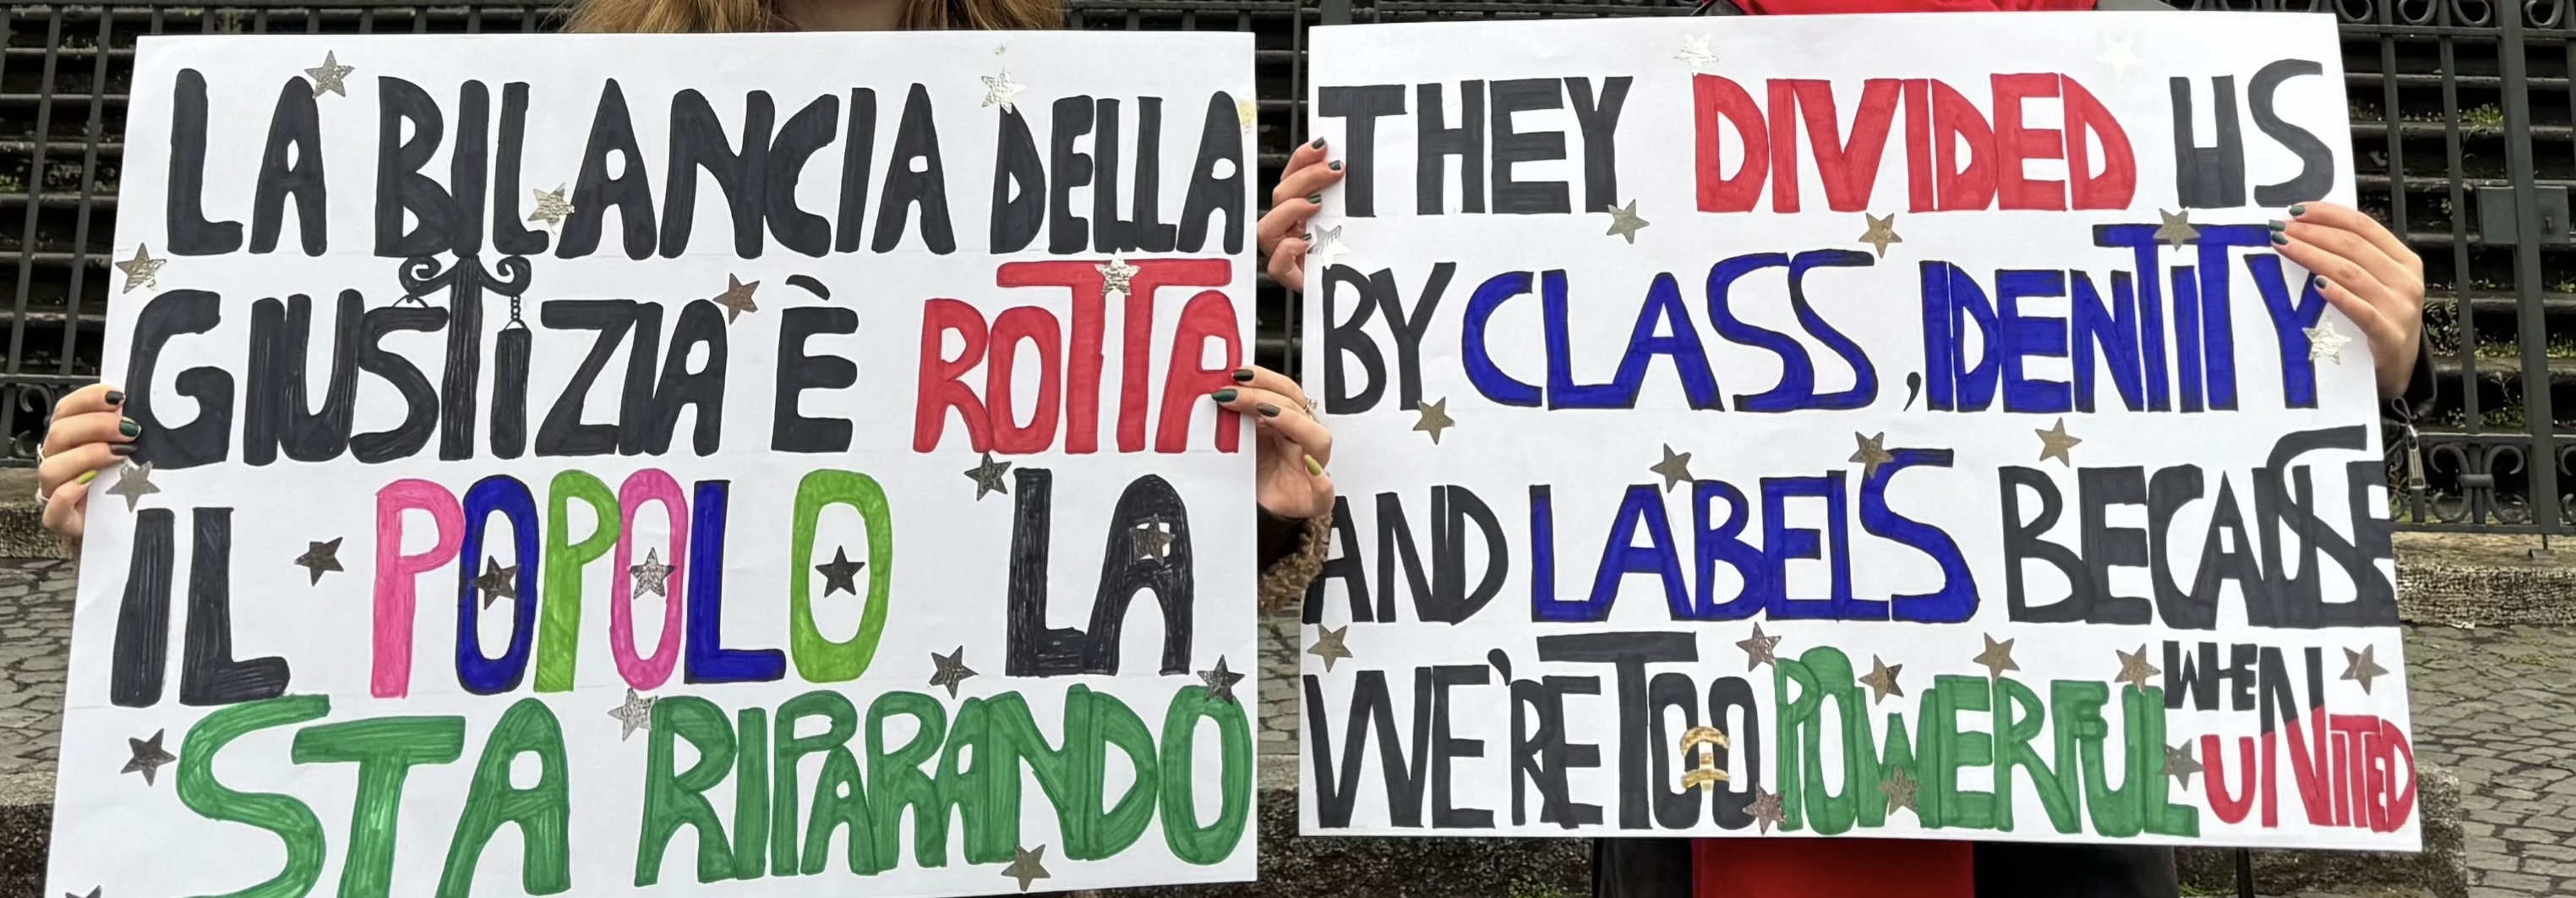 LA BILANCIA DELLA
GIUSTIZIA È ROTTA
IL POPOLO LA
STA RIPARANDO
THEY DIVIDED US
BY CLASS, IDENTITY
AND LABELS BECAUSE
WE'RE TOO POWERFUL WHEN UNITED